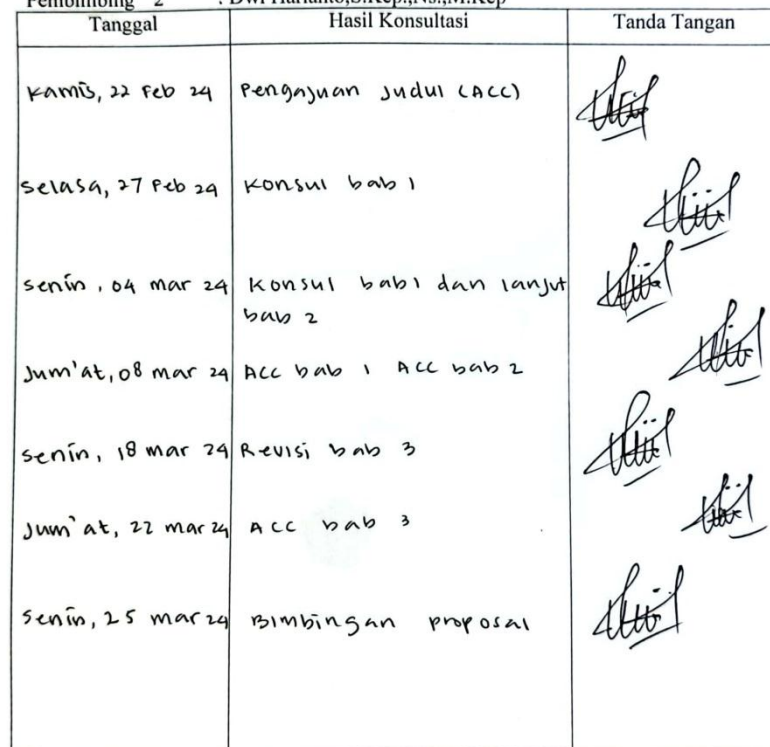 Pembimbing 2 : Dwi Harianto,S.Kep.,Ns.,M.Kep
Tanggal Hasil Konsultasi Tanda Tangan
Kamis, 22 Feb 24 Pengajuan Judul (ACC)
Selasa, 27 Feb 24 Konsul bab 1
Senin, 04 mar 24 Konsul bab 1 dan lanjut
bab 2
Jum'at, 08 mar 24 ACC bab 1 ACC bab 2
Senin, 18 mar 24 Revisi bab 3
Jum'at, 22 mar 24 ACC bab 3
Senin, 25 mar 24 Bimbingan proposal